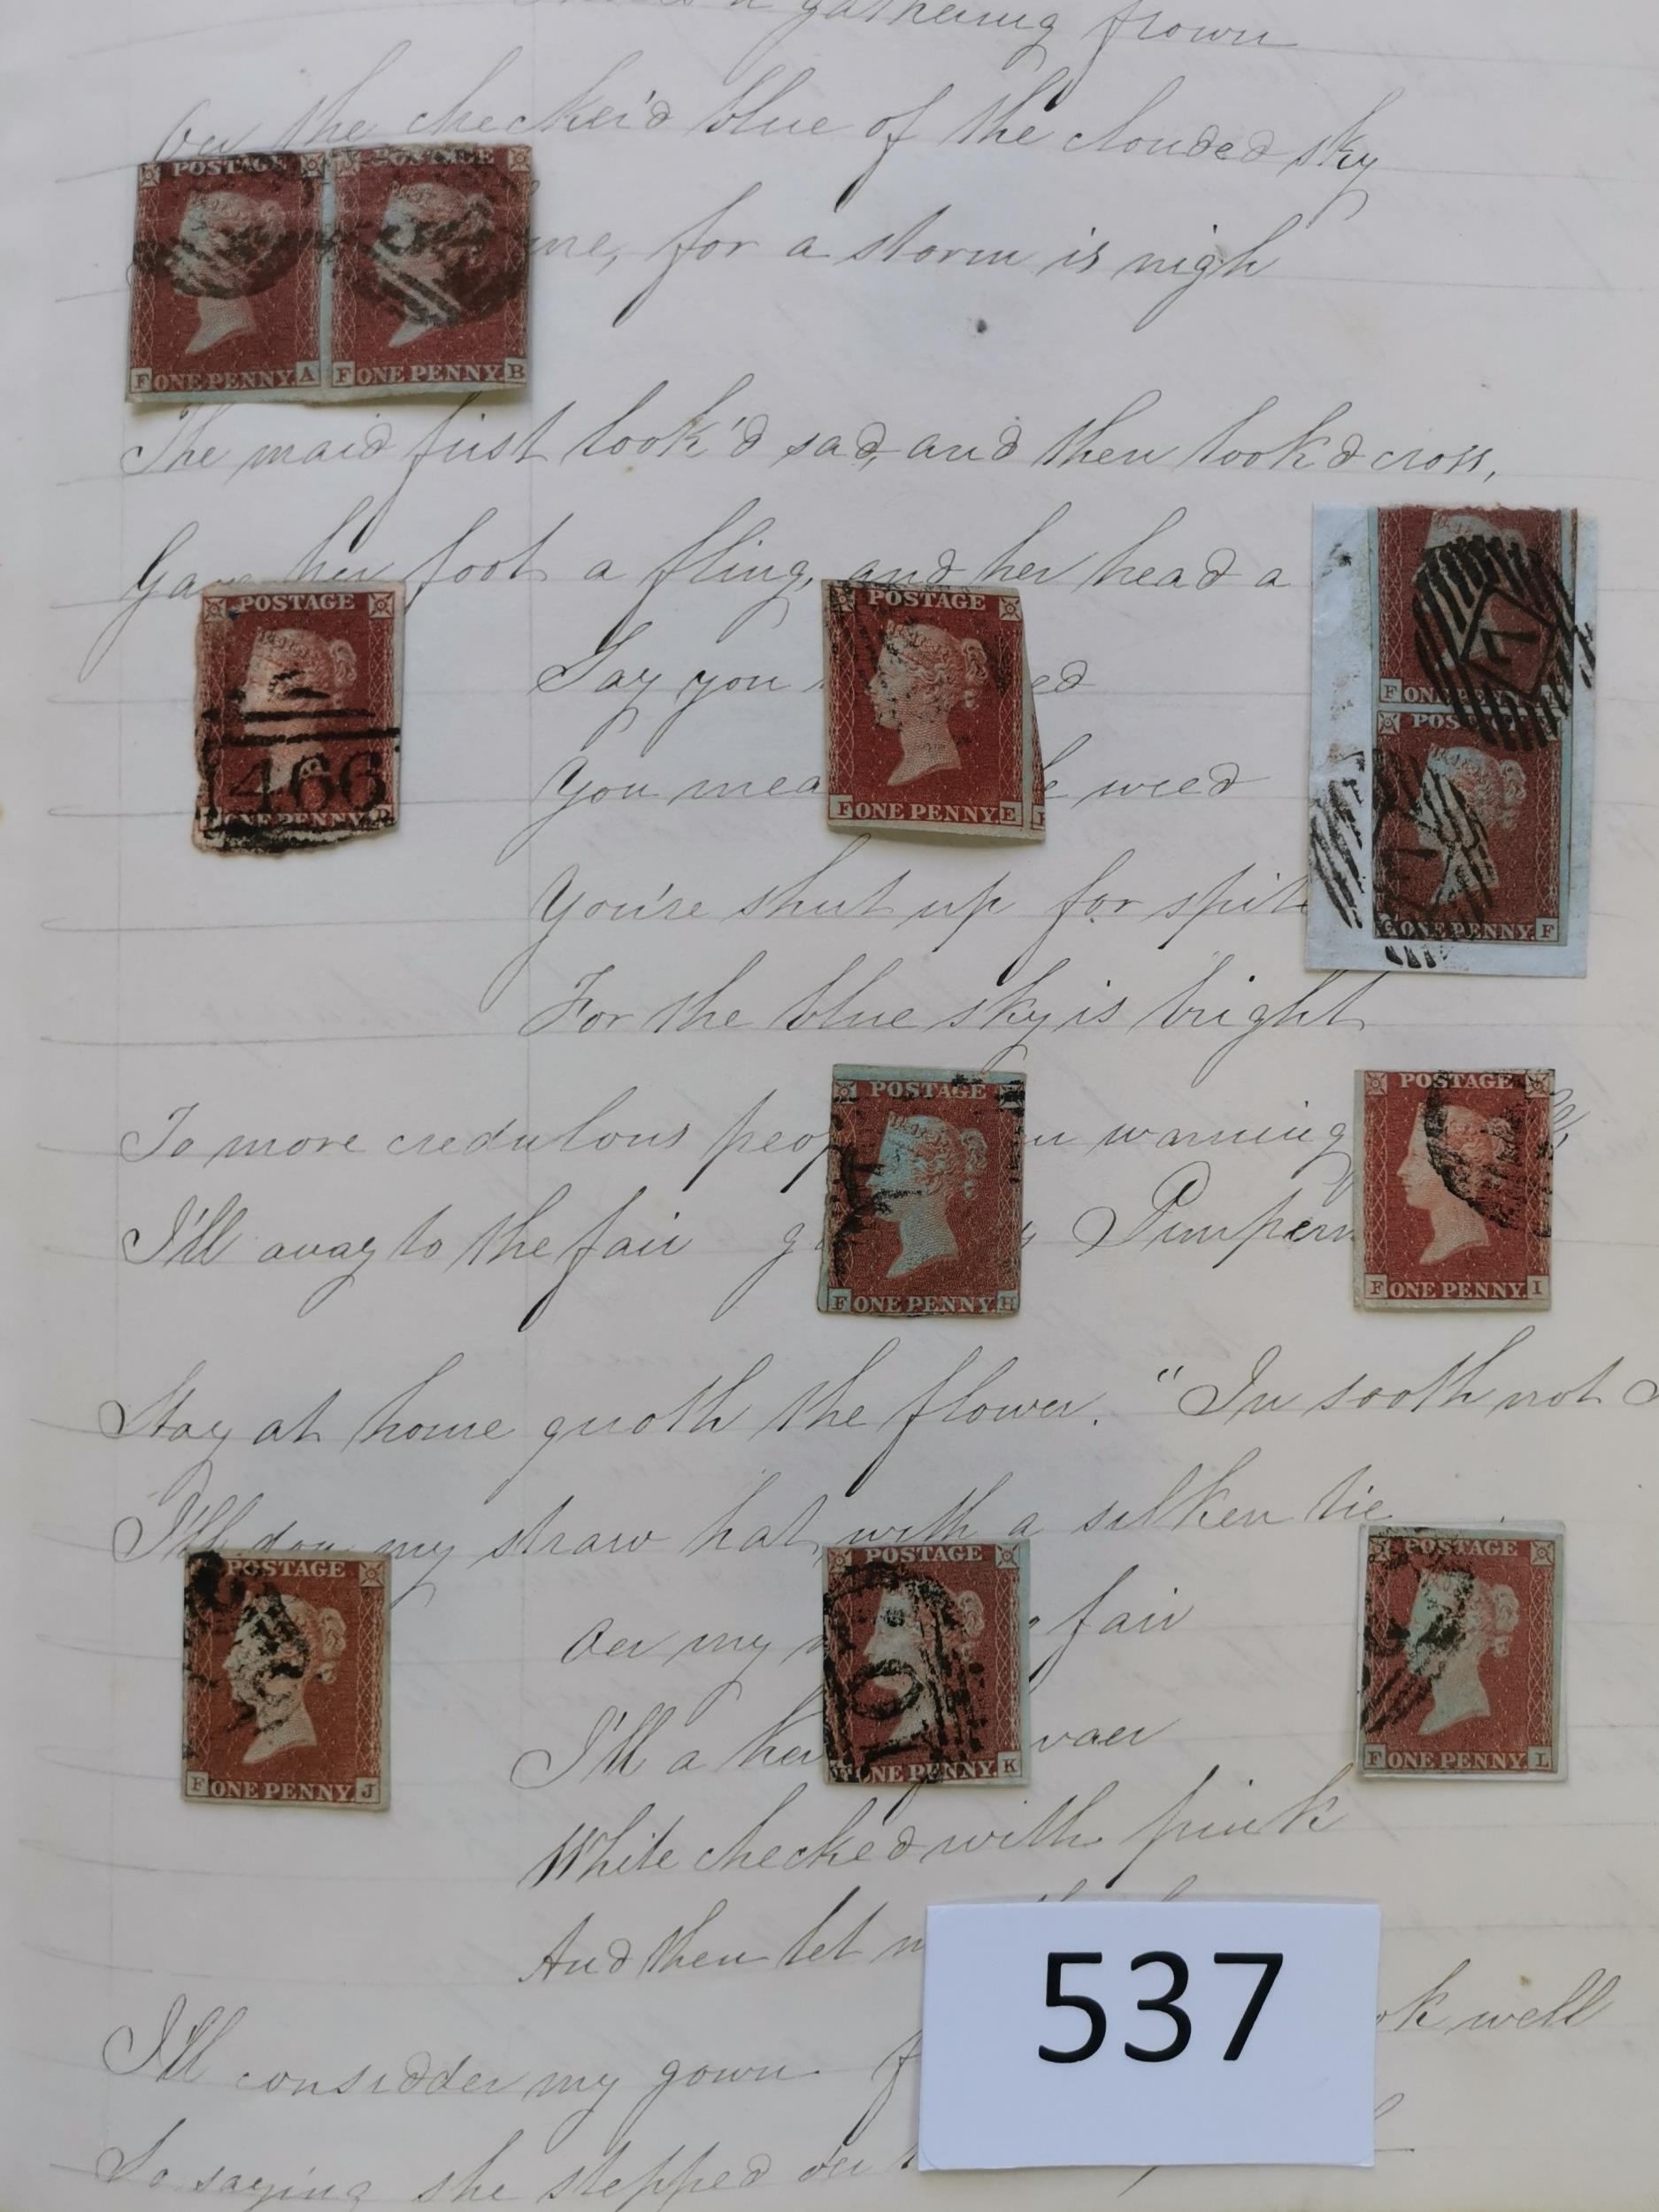 a gathering frown
Oer the checker'd blue of the clouded sky
POSTAGE POSTAGE
me, for a storm is nigh
F ONE PENNY. A F ONE PENNY. B
The maid first look'd sad, and then look'd cross,
Gave her foot a fling, and her head a
POSTAGE POSTAGE
Say you ed
F ONE PENNY
POSTAGE
466
You mea weed
ONE PENNY. F ONE PENNY. E
You're shut up for spite
ONE PENNY. F
For the blue sky is bright
POSTAGE POSTAGE
To more credulous peop warning
I'll away to the fair Pimpern
F ONE PENNY. H F ONE PENNY. I
Stay at home quoth the flower. "In sooth not
I'll don my straw hat, with a silken tie
POSTAGE POSTAGE POSTAGE
Oer my fair
I'll a ker
F ONE PENNY. J ONE PENNY. K F ONE PENNY. L
White checked with pink
And then let
537
I'll considder my gown ok well
So saying she stepped o'er